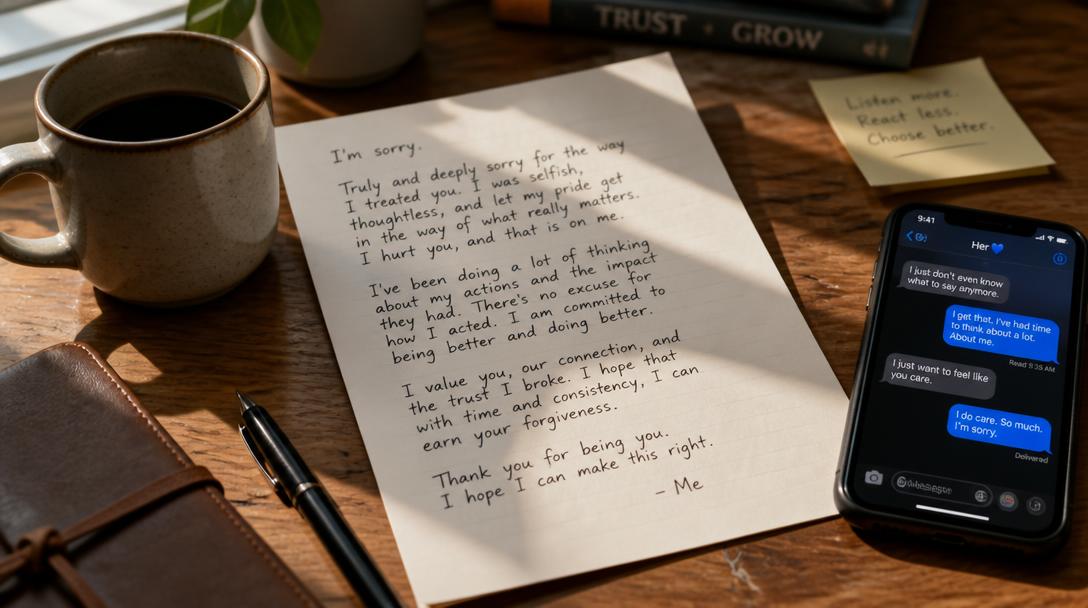 TRUST + GROW
Listen more.
React less.
Choose better.
I'm sorry.
Truly and deeply sorry for the way
I treated you. I was selfish,
thoughtless, and let my pride get
in the way of what really matters.
I hurt you, and that is on me.
I've been doing a lot of thinking
about my actions and the impact
they had. There's no excuse for
how I acted. I am committed to
being better and doing better.
I value you, our connection, and
the trust I broke. I hope that
with time and consistency, I can
earn your forgiveness.
Thank you for being you.
I hope I can make this right.
– Me
9:41
Her 💙
I just don't even know
what to say anymore.
I get that, I've had time
to think about a lot.
About me.
Read AM
I just want to feel like
you care.
I do care. So much.
I'm sorry.
Delivered